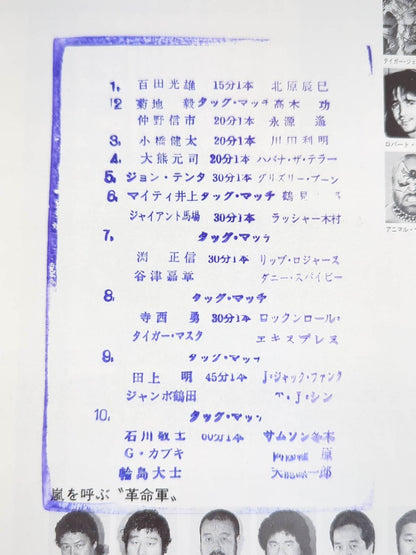 1. 百田光雄 15分1本 北原辰巳
2 菊地 毅 タッグ・マッチ 高木 功
仲野信市 20分1本 永源 遙
3. 小橋健太 20分1本 川田利明
4. 大熊元司 20分1本 ハバナ・ザ・テラー
5. ジョン・テンタ 30分1本 グリズリー・ブーン
6. マイティ井上 タッグ・マッチ 鶴見
ジャイアント馬場 30分1本 ラッシャー木村
7. タッグ・マッチ
渕 正信 30分1本 リップ・ロジャース
谷津嘉章 ダニー・スパイビー
8. タッグ・マッチ
寺西 勇 30分1本 ロックンロール・
タイガー・マスク エキスプレス
9. タッグ・マッチ
田上 明 45分1本 J・ジャック・ファンク
ジャンボ鶴田 T・J・シン
10. タッグ・マッチ
石川敬士 60分1本 サムソン冬木
G・カブキ 原
輪島大士 天龍源一郎
嵐を呼ぶ〝革命軍〟
タイガー・ジェ
ロバート・
アニマル・